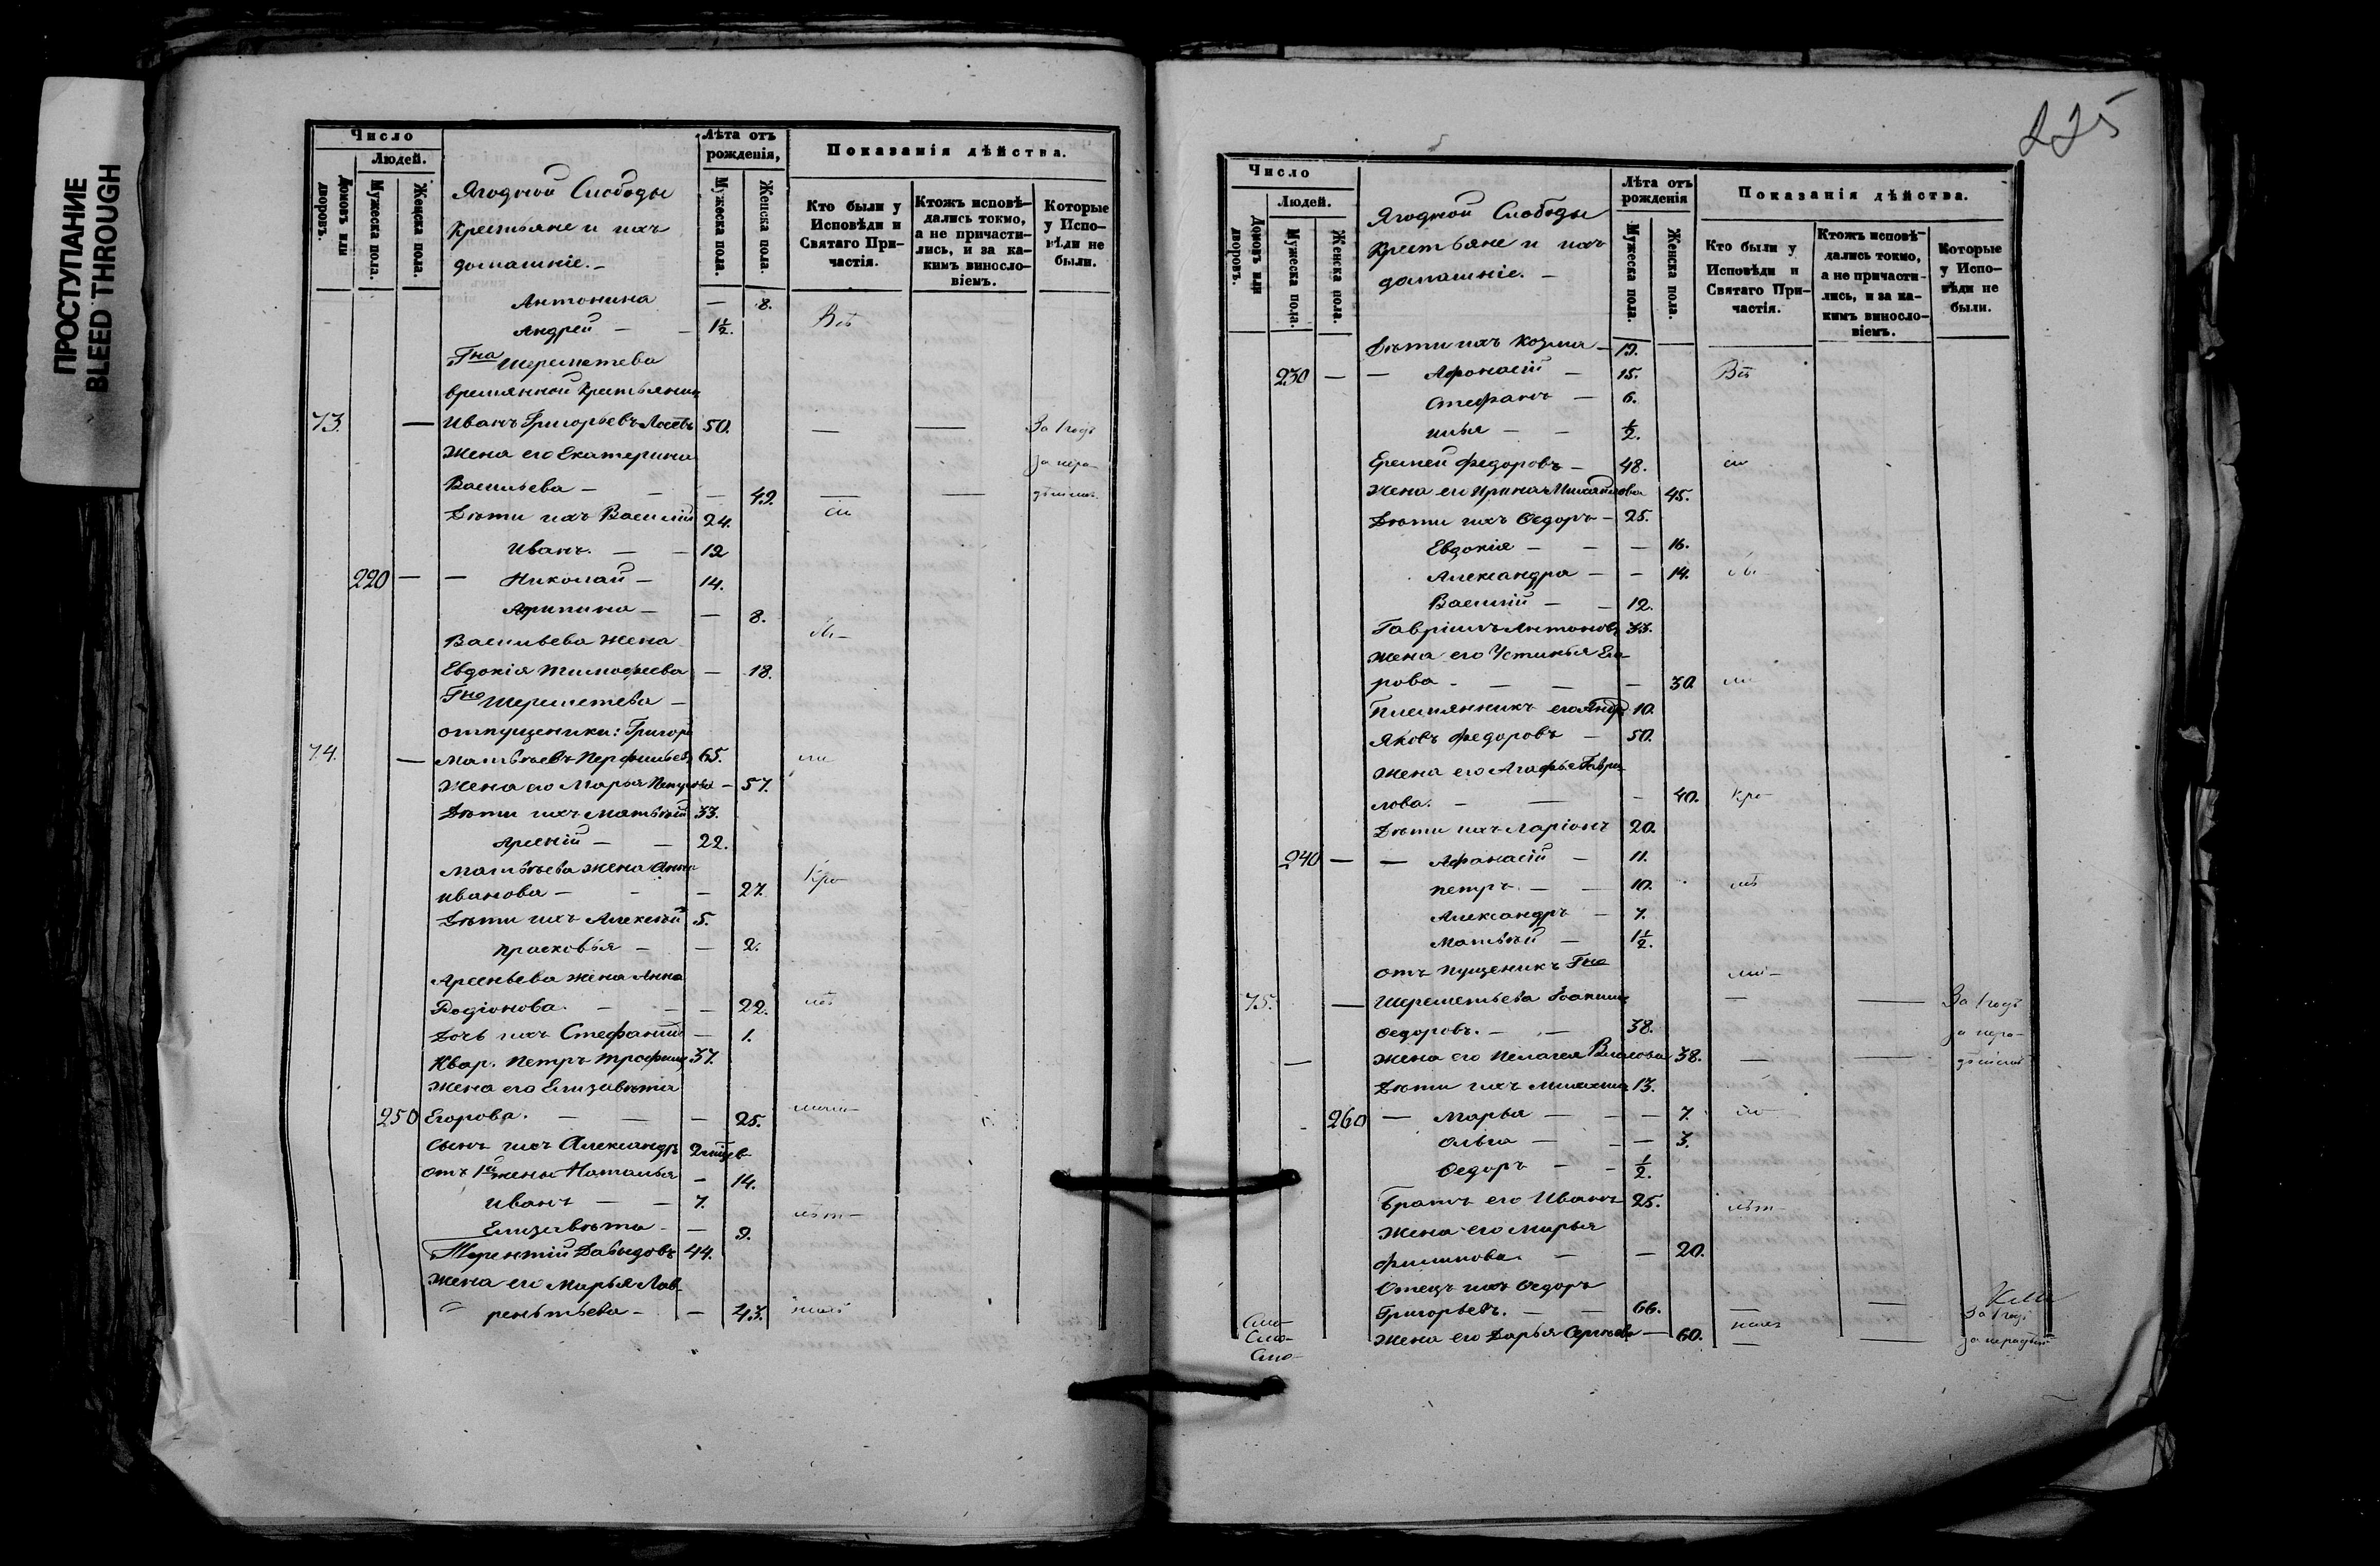 ПРОСТУПАНИЕ
BLEED THROUGH
Число
Людей.
Домовъ или дворовъ.
Мужеска пола.
Женска пола.
Ягодной Слободы
Крестьяне и ихъ
домашніе. –
Лѣта отъ рожденія,
Мужеска пола.
Женска пола.
Показанія дѣйства.
Кто были у Исповѣди и Святаго При-частія.
Ктожъ исповѣ-дались токмо, а не причасти-лись, и за ка-кимъ винosло-віемъ.
Которые у Испо-вѣди не были.
Антонина — 8.
Андрей – – 1½. Всѣ
Гна Шереметева
временной Крестьянинъ
73. — Иванъ Григорьевъ 50. — — За 1 годъ
Жена его Екатерина за нера-
Васильева – – — 49. — —
Дѣти ихъ Василій 24. сіи
Иванъ. – – 19
220 — — Николай – 14.
Агрипина – — 8.
Васильева жена
Евдокія Тимофеева — 18.
Гна Шереметева –
отпущеники: Григорій
74. — Матвѣевъ Перфильевъ 65. ли
Жена его Марья Петрова – 57.
Дѣти ихъ Матвѣй 33.
Арсеній – – 22.
Матвѣева жена Анна
Иванова – – — 27. Кро
Дѣти ихъ Алексѣй 5.
Прасковья – — 2.
Арсеньева жена Анна
Родіонова. – – — 22.
Дочь ихъ Стефанида — 1.
Квар. Петръ Трофимовъ 37.
Жена его Елизавета
250 Егорова. – – — 25.
Сынъ ихъ Александръ
Отъ 1й жены Наталья — 14.
Иванъ – – 7.
Елизавета – — 9. лѣт–
Терентій Давыдовъ 44.
Жена его Марья Лав-
рентьева – — 43.
225
Число
Людей.
Домовъ или дворовъ.
Мужеска пола.
Женска пола.
Ягодной Слободы
Крестьяне и ихъ
домашніе. –
Лѣта отъ рожденія
Мужеска пола.
Женска пола.
Показанія дѣйства.
Кто были у Исповѣди и Святаго При-частія.
Ктожъ исповѣ-дались токмо, а не причасти-лись, и за ка-кимъ винosло-віемъ.
Которые у Испо-вѣди не были.
Дѣти ихъ Козма – 19.
230 — — Афонасій – 15. Всѣ
Стефанъ – 6.
Илья – – ½.
Еремей Федоровъ – 48. сіи
Жена его Ирина Михайлова 45.
Дѣти ихъ Ѳедоръ – 25.
Евдокія – – — 16.
Александра – — 14.
Василій – – 12.
Гавріилъ Антоновъ 33.
Жена его Устинья Его-
рова – – – — 30. ли
Племянникъ его Андр. 10.
Яковъ Федоровъ – 50.
Жена его Агафья Гаври-
лова. – – — 40. Кро
Дѣти ихъ Ларіонъ 20.
240 — — Афанасій – 11.
Петръ. – – 10.
Александръ – 7.
Матвѣй – 1½.
Отъ пущеникъ Гна
75. — Шереметьева Іоакимъ — — За 1 годъ
Ѳедоровъ. – – 38. за нера-
— Жена его Пелагея Власова 38. — —
Дѣти ихъ 13.
260 — Марья – – — 7.
Ольга – – — 3.
Ѳедоръ – – ½.
Братъ его Иванъ 25. лѣт–
Жена его Марья
Филипова. – — 20.
Отецъ ихъ Ѳедоръ
Григорьевъ. – – 66. — — За 1 годъ
Жена его Дарья Сергѣева — 60. — —